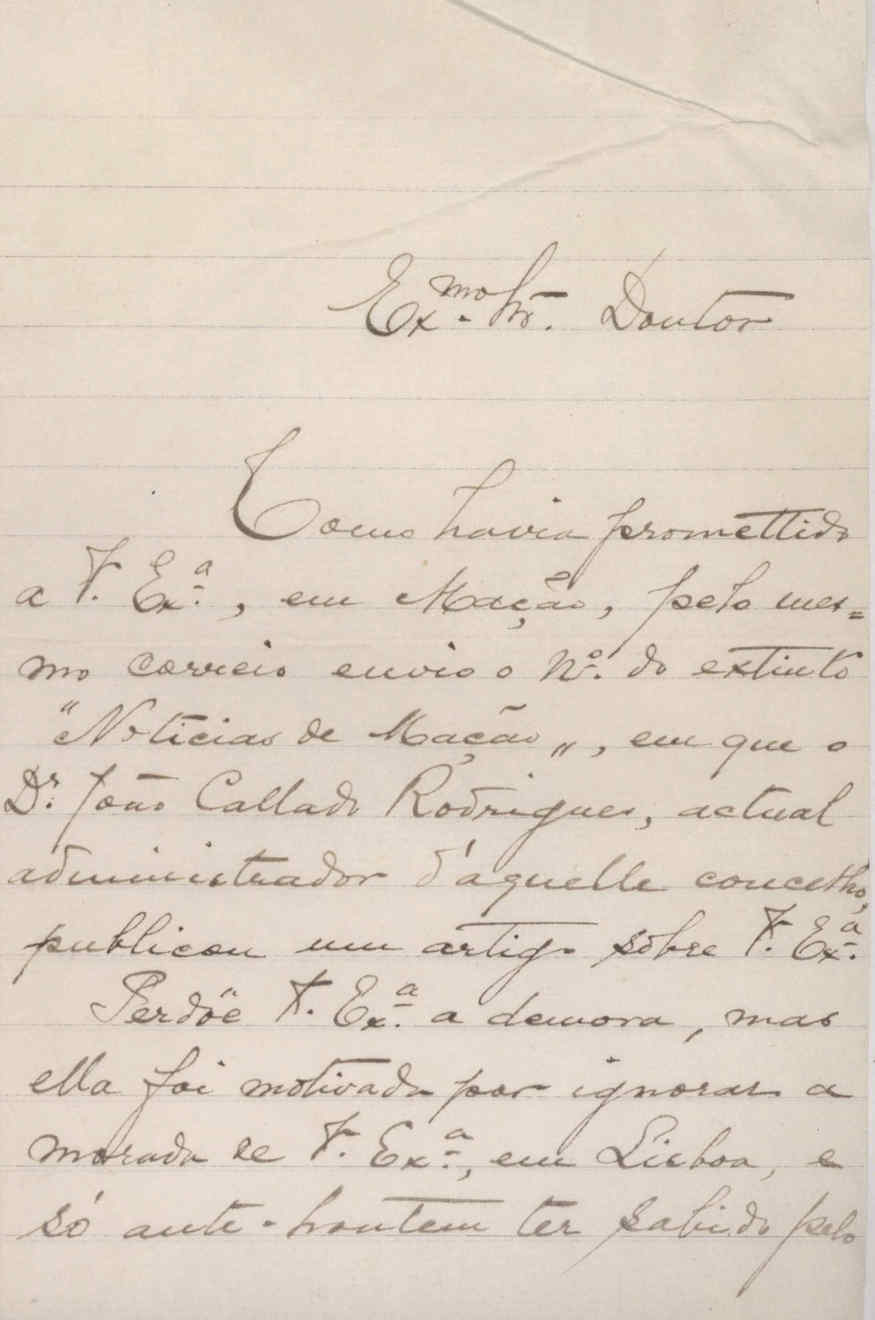 Ex.mo Sr. Doutor
Como havia promettido
a V. Ex.ª, em Mação, pelo mes=
mo correio envio o Nº. do extinto
"Noticias de Mação", em que o
Dr. João Callado Rodrigues, actual
administrador d'aquelle concelho,
publicou um artigo sôbre V. Ex.ª
Perdôe V. Ex.ª a demora, mas
ella foi motivada por ignorar a
morada de V. Ex.ª, em Lisboa, e
só ante-hontem ter sabido pelo